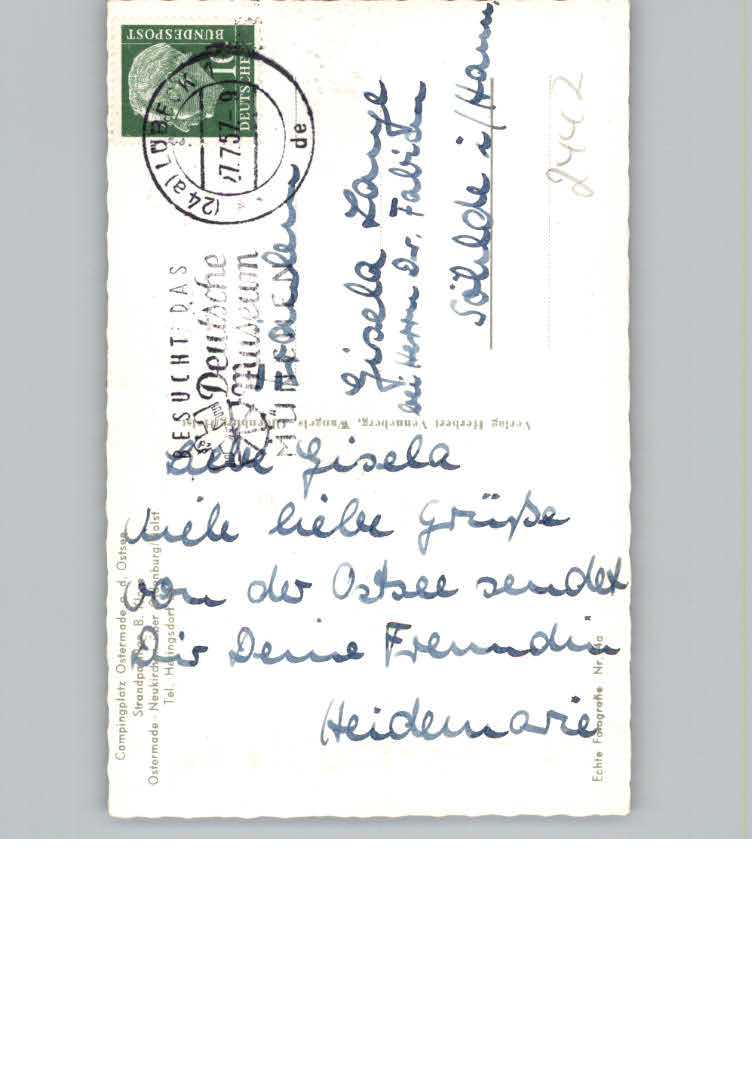 Liebe Gisela
viele liebe Grüße
von der Ostsee sendet
Dir Deine Freundin
Heidemarie
Fräulein
Gisela Lange
bei Herrn Dr. Fabian
Söhlde i/Hann
2442
DEUTSCHE
BUNDESPOST
10
(24a) LÜBECK
27.7.57-9
de
BESUCHT DAS
Deutsche
Museum
MÜNCHEN
Verlag Herbert Venneberg, Wangels
Campingplatz Ostermade a. d. Ostsee
Strandpavillon B.
Ostermade - Neukirchen über Oldenburg/Holst.
Tel. Heringsdorf
Echte Fotografie Nr.